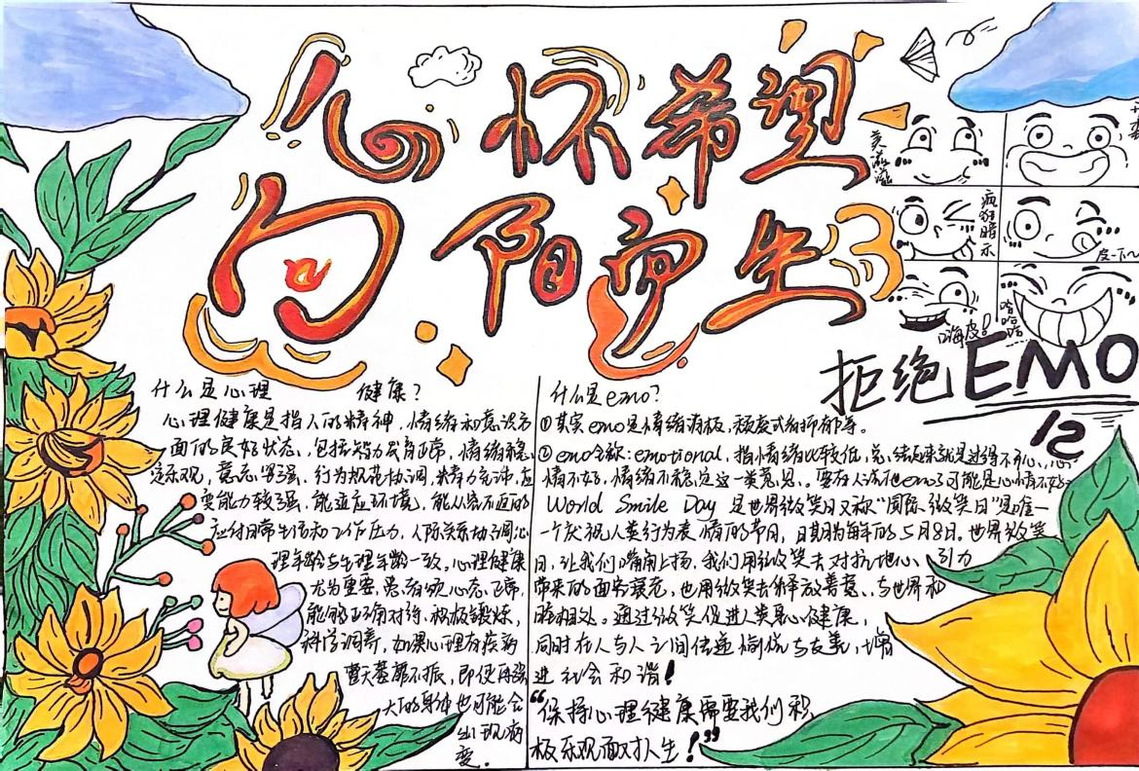 心怀希望
向阳而生
美滋滋
疯狂暗示
皮一下~
嗨皮!
哈哈哈
拒绝EMO
12
什么是心理 健康?
心理健康是指人的精神、情绪和意识方
面的良好状态、包括智力发育正常,情绪稳
定乐观,意志坚强,行为规范协调,精力充沛,应
变能力较强,能适应环境,能从容不迫的
应付日常生活和工作压力,人际关系协调,心
理年龄与生理年龄一致。心理健康
尤为重要,患者须心态正常,
能够正确对待,积极锻炼,
科学调养,如果心理有疾病
整天萎靡不振,即使再强
大的身体也可能会
出现病
变。
什么是emo?
①其实emo是情绪消极,颓废或者抑郁等。
②emo全称:emotional,指情绪比较低,总结起来就是过得不开心,心
情不好,情绪不稳定这一类意思。要有人说他emo了可能是心情不好。
World Smile Day 是世界微笑日又称"国际微笑日"是唯一
一个庆祝人类行为表情的节日,日期为每年的5月8日。世界微笑
日,让我们嘴角上扬,我们用微笑去对抗地心引力
带来的面容衰老,也用微笑去释放善意、与世界和
睦相处。通过微笑促进人类身心健康,
同时在人与人之间传递愉悦与友善,增
进社会和谐!
"保持心理健康需要我们积
极乐观面对人生!"